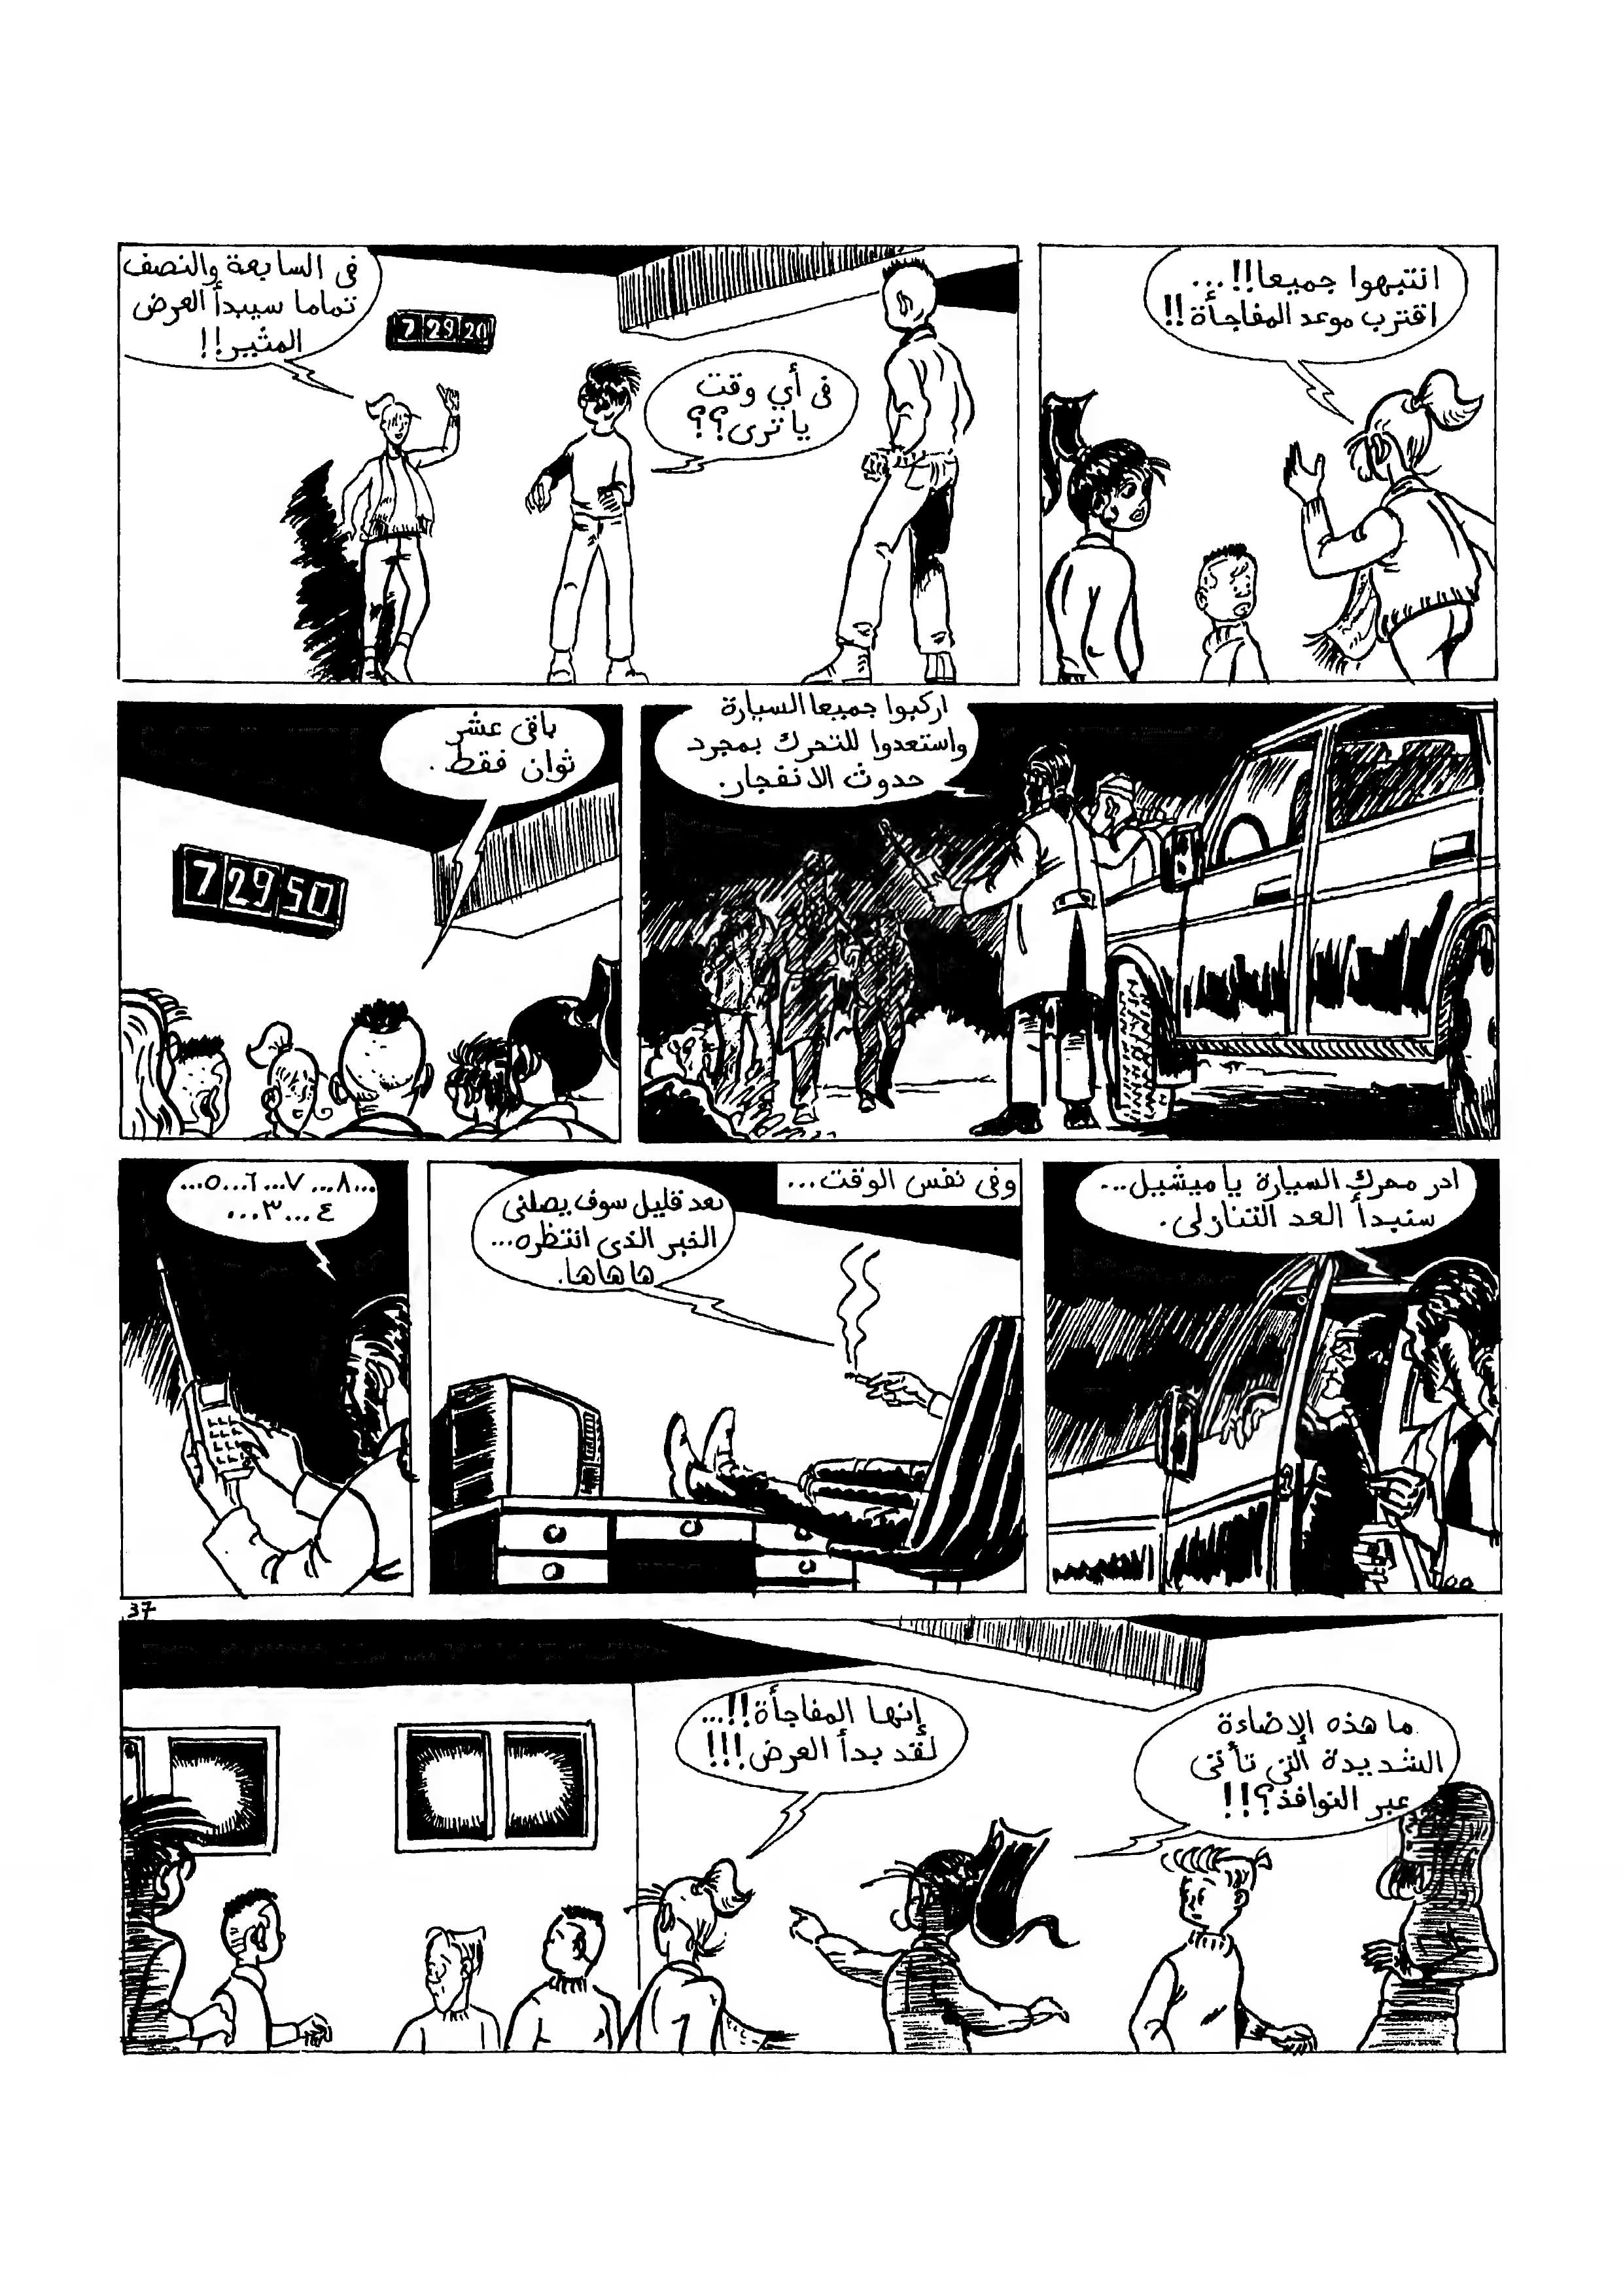 انتبهوا جميعا!!...
اقترب موعد المفاجأة!!
فى أي وقت
يا ترى؟؟
فى السابعة والنصف
تماما سيبدأ العرض
المثير!!
7 29 20
اركبوا جميعا السيارة
واستعدوا للتحرك بمجرد
حدوث الانفجار.
باقى عشر
ثوان فقط.
7 29 50
ادر محرك السيارة يا ميشيل...
سنبدأ العد التنازلى.
وفى نفس الوقت...
بعد قليل سوف يصلنى
الخبر الذى انتظره...
ها ها ها.
...٨...٧...٦...٥...
٤...٣...
37
ما هذه الإضاءة
الشديدة التى تأتى
عبر النوافذ؟!!
إنها المفاجأة!!...
لقد بدأ العرض!!!